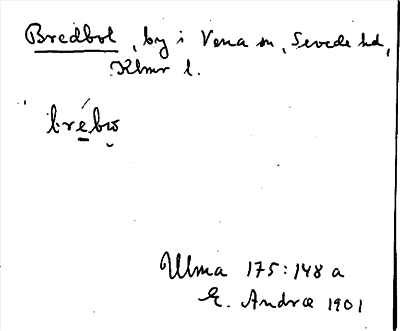 Bredbol, by i Vena sn, Sevede hd,
Klmr l.
brébω
Ulma 175:148 a
E. Andræ 1901